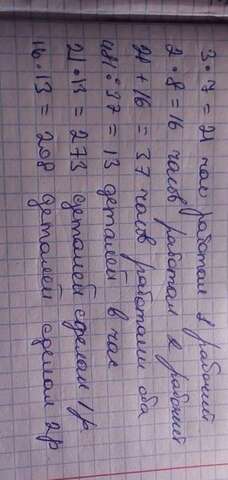 3 • 7 = 21 час работал 1 рабочий
2 • 8 = 16 часов работал 2 рабочий
21 + 16 = 37 часов работали оба
481 : 37 = 13 деталей в час
21 • 13 = 273 деталей сделал 1 р.
16 • 13 = 208 деталей сделал 2 р